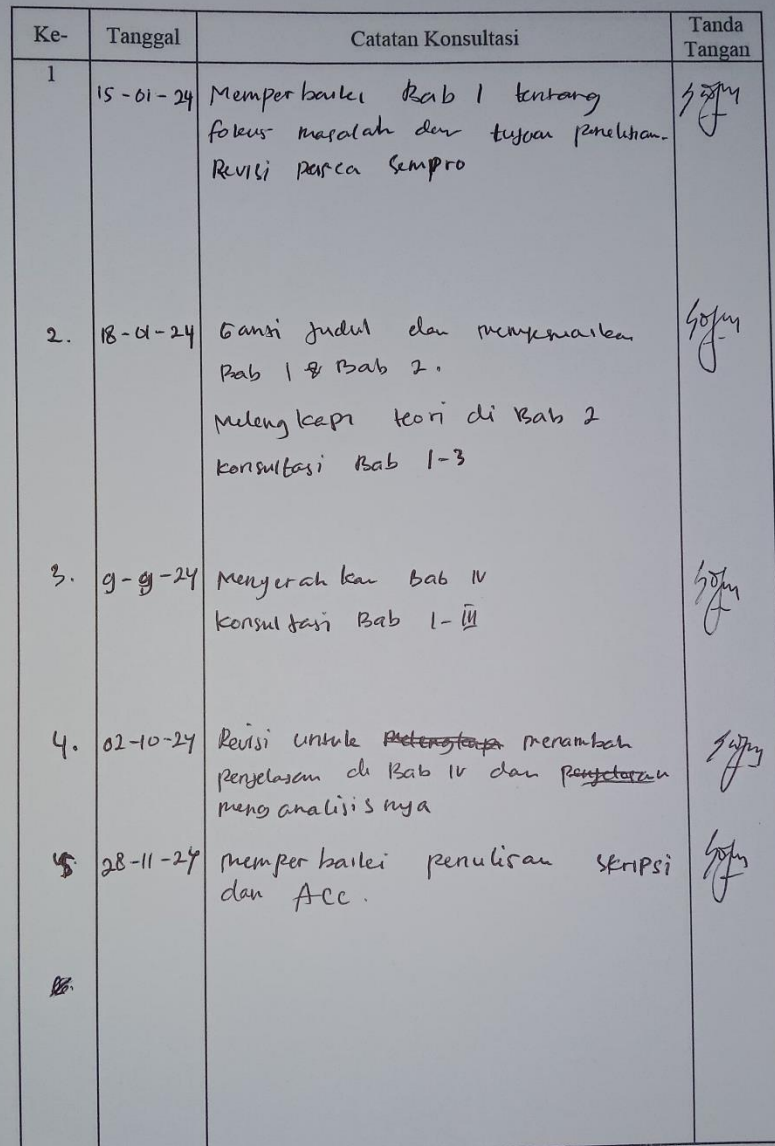 Ke- Tanggal Catatan Konsultasi Tanda Tangan
1
15-01-24 Memperbaiki Bab 1 tentang
fokus masalah dan tujuan penelitian.
Revisi pasca Sempro
2. 18-01-24 Ganti Judul dan menyesuaikan
Bab 1 & Bab 2.
Melengkapi teori di Bab 2
konsultasi Bab 1-3
3. 9-9-24 Menyerahkan Bab IV
konsultasi Bab 1-III
4. 02-10-24 Revisi untuk menambah
penjelasan di Bab IV dan
menganalisisnya
5. 28-11-24 memperbaiki penulisan skripsi
dan ACC.